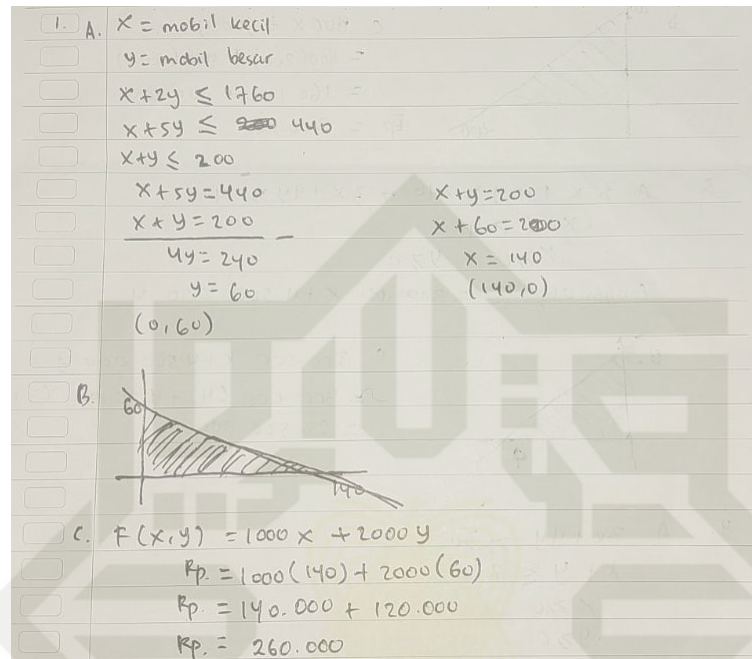 1. A. x = mobil kecil
y = mobil besar
x + 2y ≤ 1760
x + 5y ≤ 440
x + y ≤ 200
x + 5y = 440
x + y = 200 –
4y = 240
y = 60
(0,60)
x + y = 200
x + 60 = 200
x = 140
(140,0)
B.
60
140
C. F(x,y) = 1000x + 2000y
Rp. = 1000(140) + 2000(60)
Rp. = 140.000 + 120.000
Rp. = 260.000